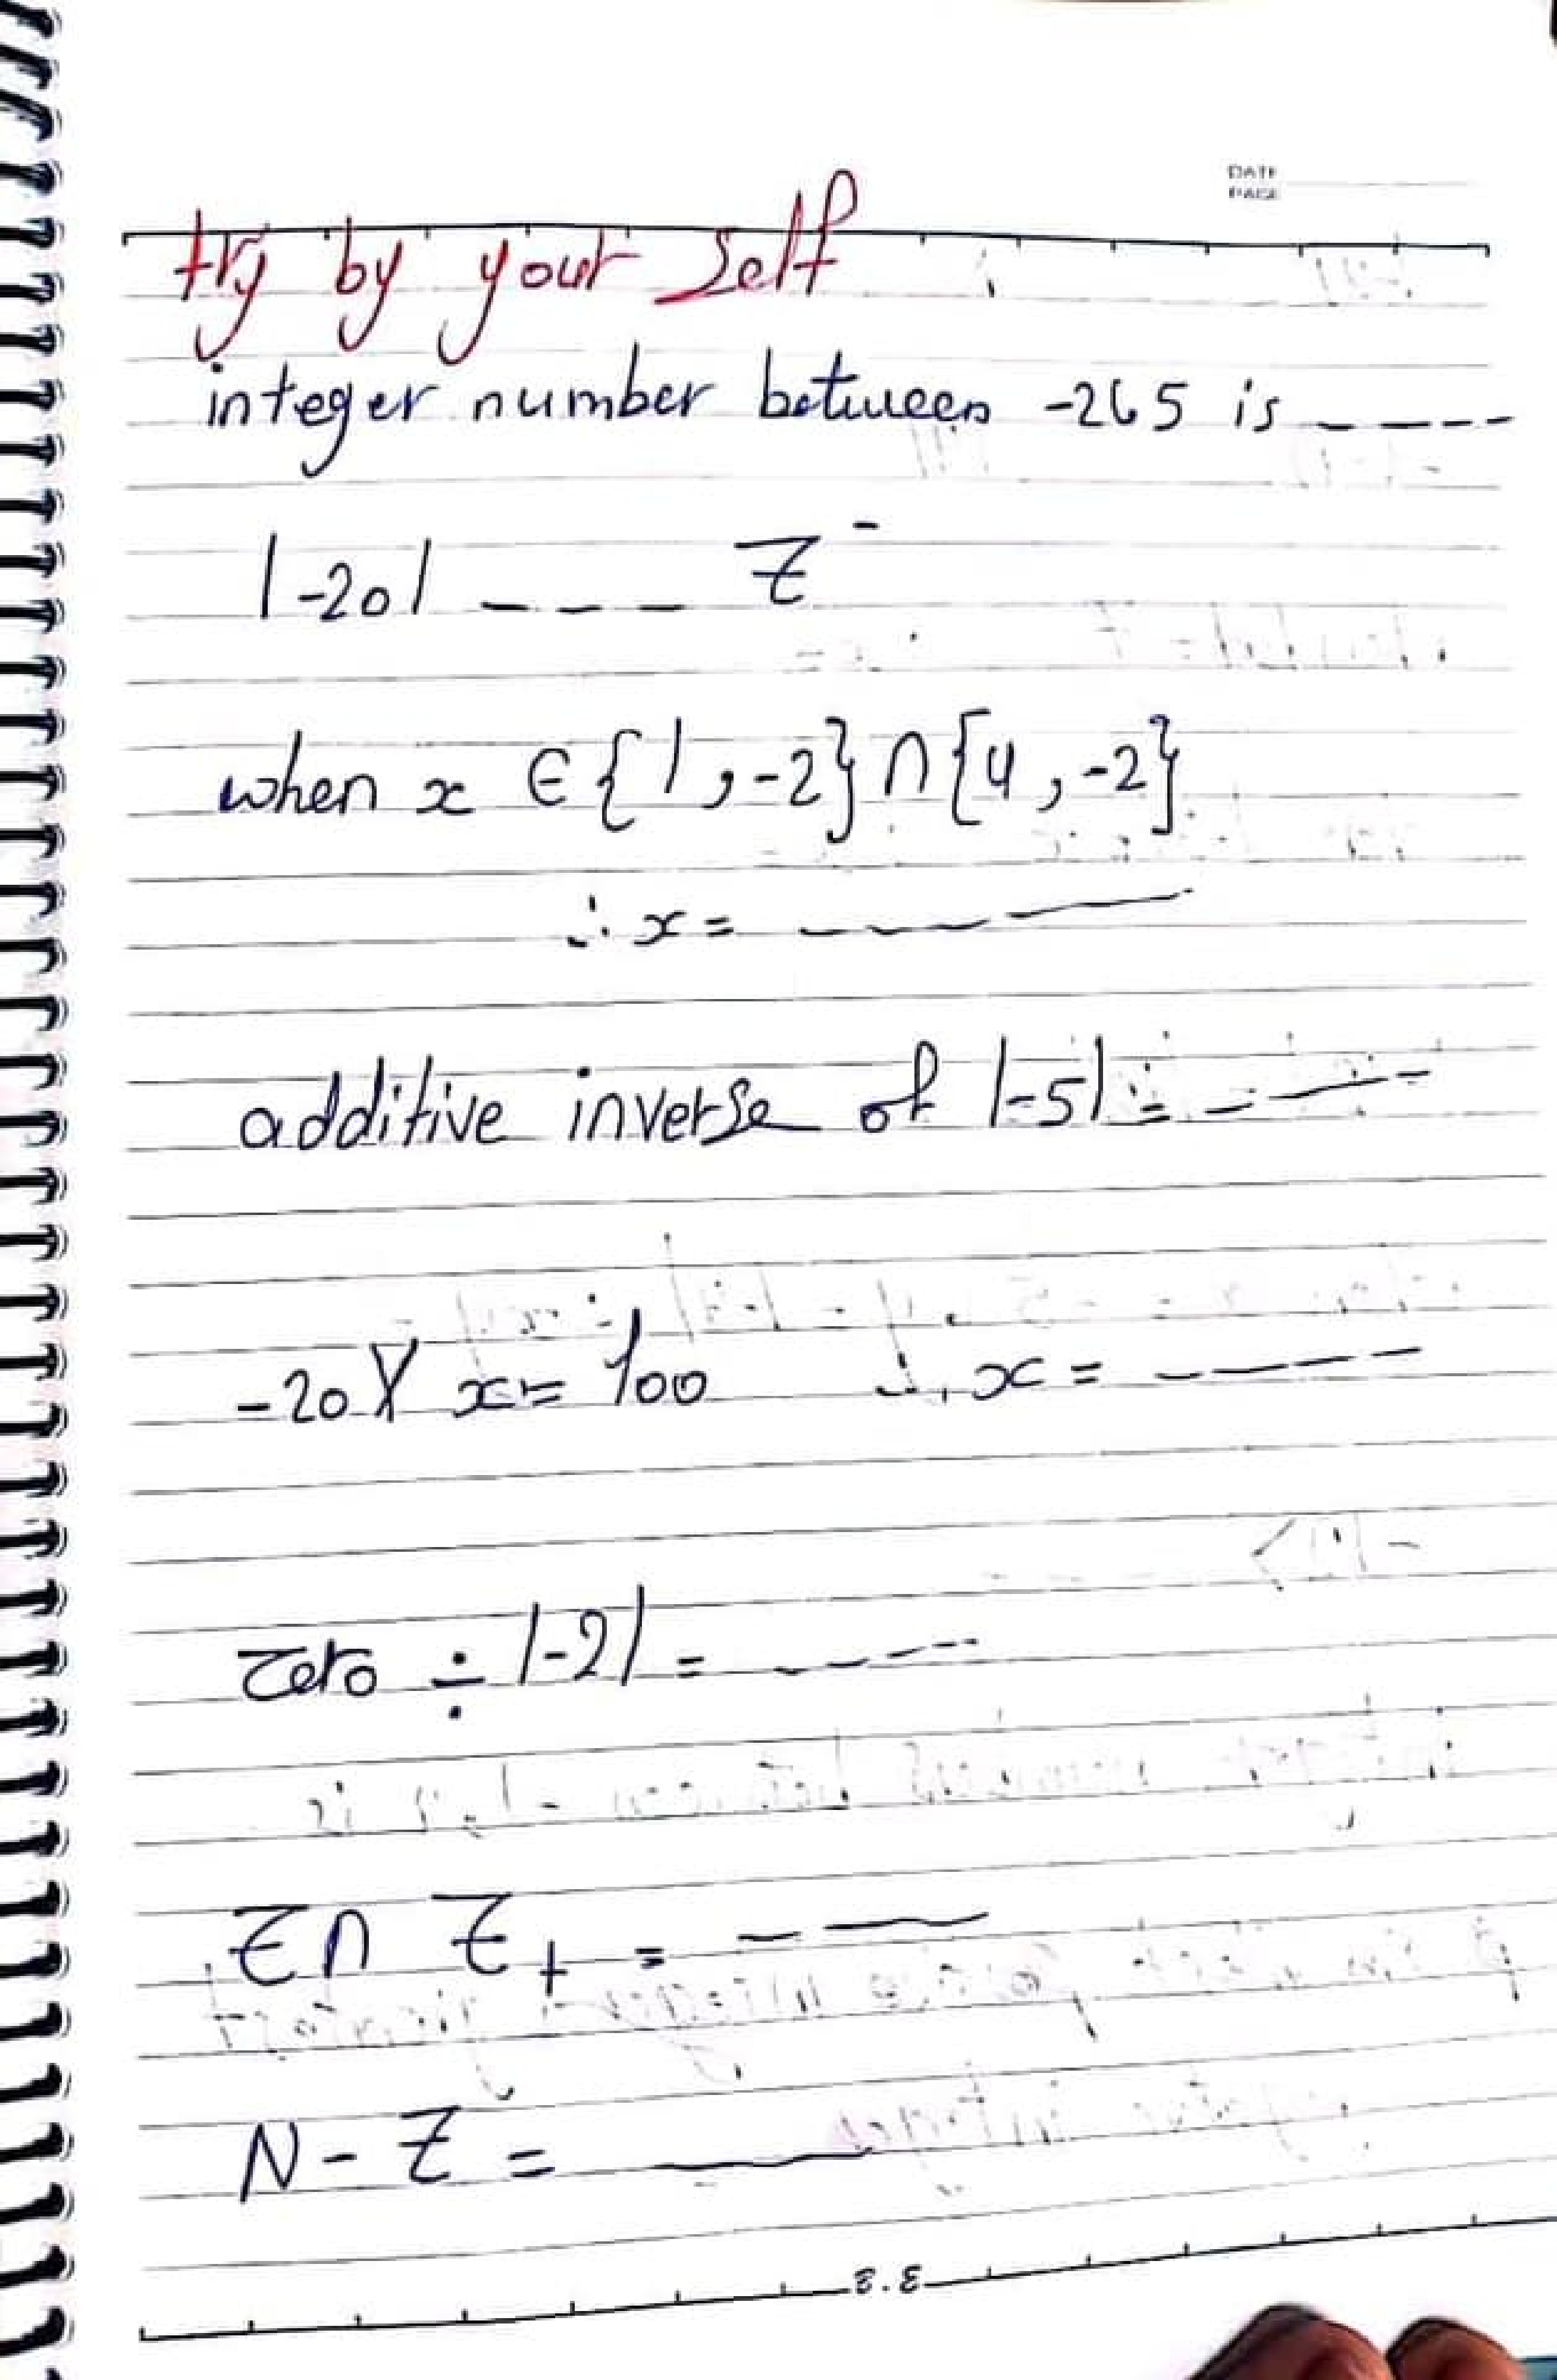 DATE
PAGE
try by your self
integer number between -2 & 5 is ----
|-20| --- Z⁻
when x ∈ {1, -2} ∩ {4, -2}
∴ x = ----
additive inverse of |-5| = ---
-20 X x = 100 ∴ x = ----
zero ÷ |-2| = ----
Z ∩ Z₊ = ---
N - Z = ---